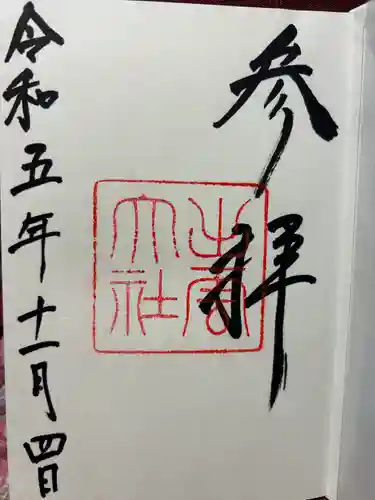 参拝
出雲
大社
令和五年十一月四日